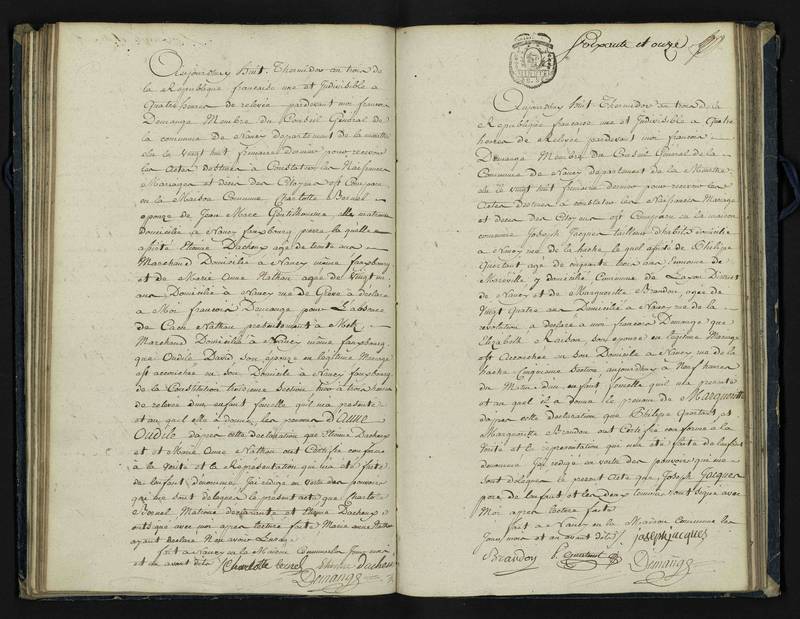 Aujourd'huy huit Thermidor an trois de
la République française une et Indivisible à
quatre heures de relevée pardevant moi françois
Demange Membre du Conseil Général de
la commune de Nancy departement de la meurthe
élu le vingt huit frimaire dernier pour recevoir
les Actes destinés à Constater les Naissances
Mariages et décès des Citoyens est Comparu
en la Maison Commune Charlotte
épouze de Jean Marc matrone
Domiciliée à Nancy fauxbourg pierre laquelle
assisté Etienne Dacheux agé de trente
Marchand Domicilié à Nancy même fauxbourg
et de Marie Anne Nathan agée de vingt
ans Domiciliée à Nancy rue de Grève à déclaré
à Moi françois Demange pour L'absence
de Caen Nathan présentement à Metz
Marchand Domicilié à Nancy même fauxbourg
que Oudile David son épouze en legitime Mariage
est accouchée en son Domicile à Nancy fauxbourg
de la Constitution Section hier à trois heures
de relevée d'un enfant femelle qu'il m'a présenté
et auquel elle à donné les prenoms d'Anne
Oudile d'après cette déclaration que Etienne Dacheux
et et Marie Anne Nathan ont Certifié conforme
à la vérité et la Représentation qui m'a été faite
de l'enfant dénommé J'ai rédigé en vertu des pouvoirs
qui me sont délégués le présent acte que Charlotte
Matrone declarante et Etienne Dacheux
ont signé avec moi après lecture faite Marie anne Nathan
ayant declaré N'en avoir L'usage
fait à Nancy en la Maison Commune les jour mois
et an avant dits Charlotte Dacheux
Demange
Soixante et onze
Aujourd'huy huit Thermidor an trois de la
République française une et Indivisible à Quatre
heures de Relevée pardevant moi françois
Demange Membre du Conseil Général de la
Commune de Nancy departement de la Meurthe
élu le vingt huit frimaire dernier pour recevoir les
Actes destinés à constater les Naissances Mariages
et décès des Citoyens est Comparu en la maison
commune Joseph Jacques tailleur d'habits domicilié
à Nancy rue de la hache lequel assisté de Philippe
Quertant agé de ans
Mareville y domicilié Commune de Laxou District
de Nancy et de Marguerite Brandon, agée de
vingt quatre ans Domiciliée à Nancy rue de la
révolution à déclaré à moi françois Demange que
Elizabeth son épouse en légitime Mariage
est accouchée en son Domicile à Nancy rue de la
hache Cinquieme Section aujourd'huy à Neuf heures
du Matin d'un enfant femelle qu'il m'a presenté
et auquel il a donné le prenom de Marguerite
d'après cette declaration que Philippe Quertant et
Marguerite Brandon ont Certifié conforme à la
vérité et la représentation qui m'a été faite de l'enfant
dénommé J'ai rédigé en vertu des pouvoirs qui me
sont délégués le present Acte que Joseph Jacques
pere de l'enfant et les deux temoins ont signé avec
Moi après lecture faite
fait à Nancy en la Maison Commune les
jour, mois et an avant dits joseph jacques
Brandon Demange